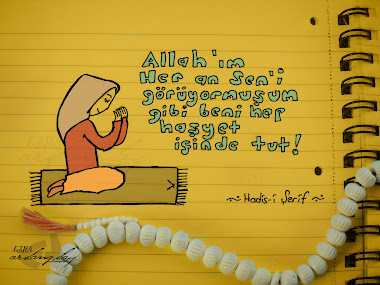 Allah'ım
Her an Sen'i
görüyormuşum
gibi beni her
haşyet
içinde tut!
~ Hadis-i Şerif ~